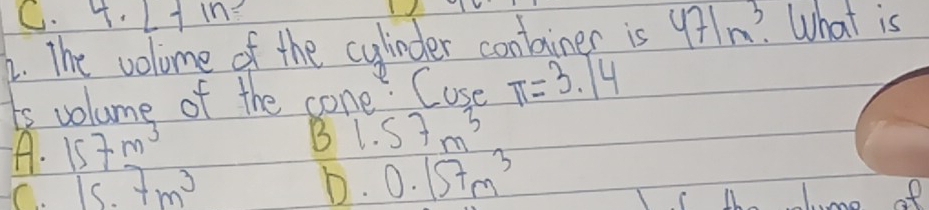 C. 4.71 in³
2. The volume of the cylinder container is 471m³. What is
ts volume of the cone? Cuse π=3.14
A. 157m³ B 1.57m³
C. 15.7m³ D. 0.157m³
of the volume of